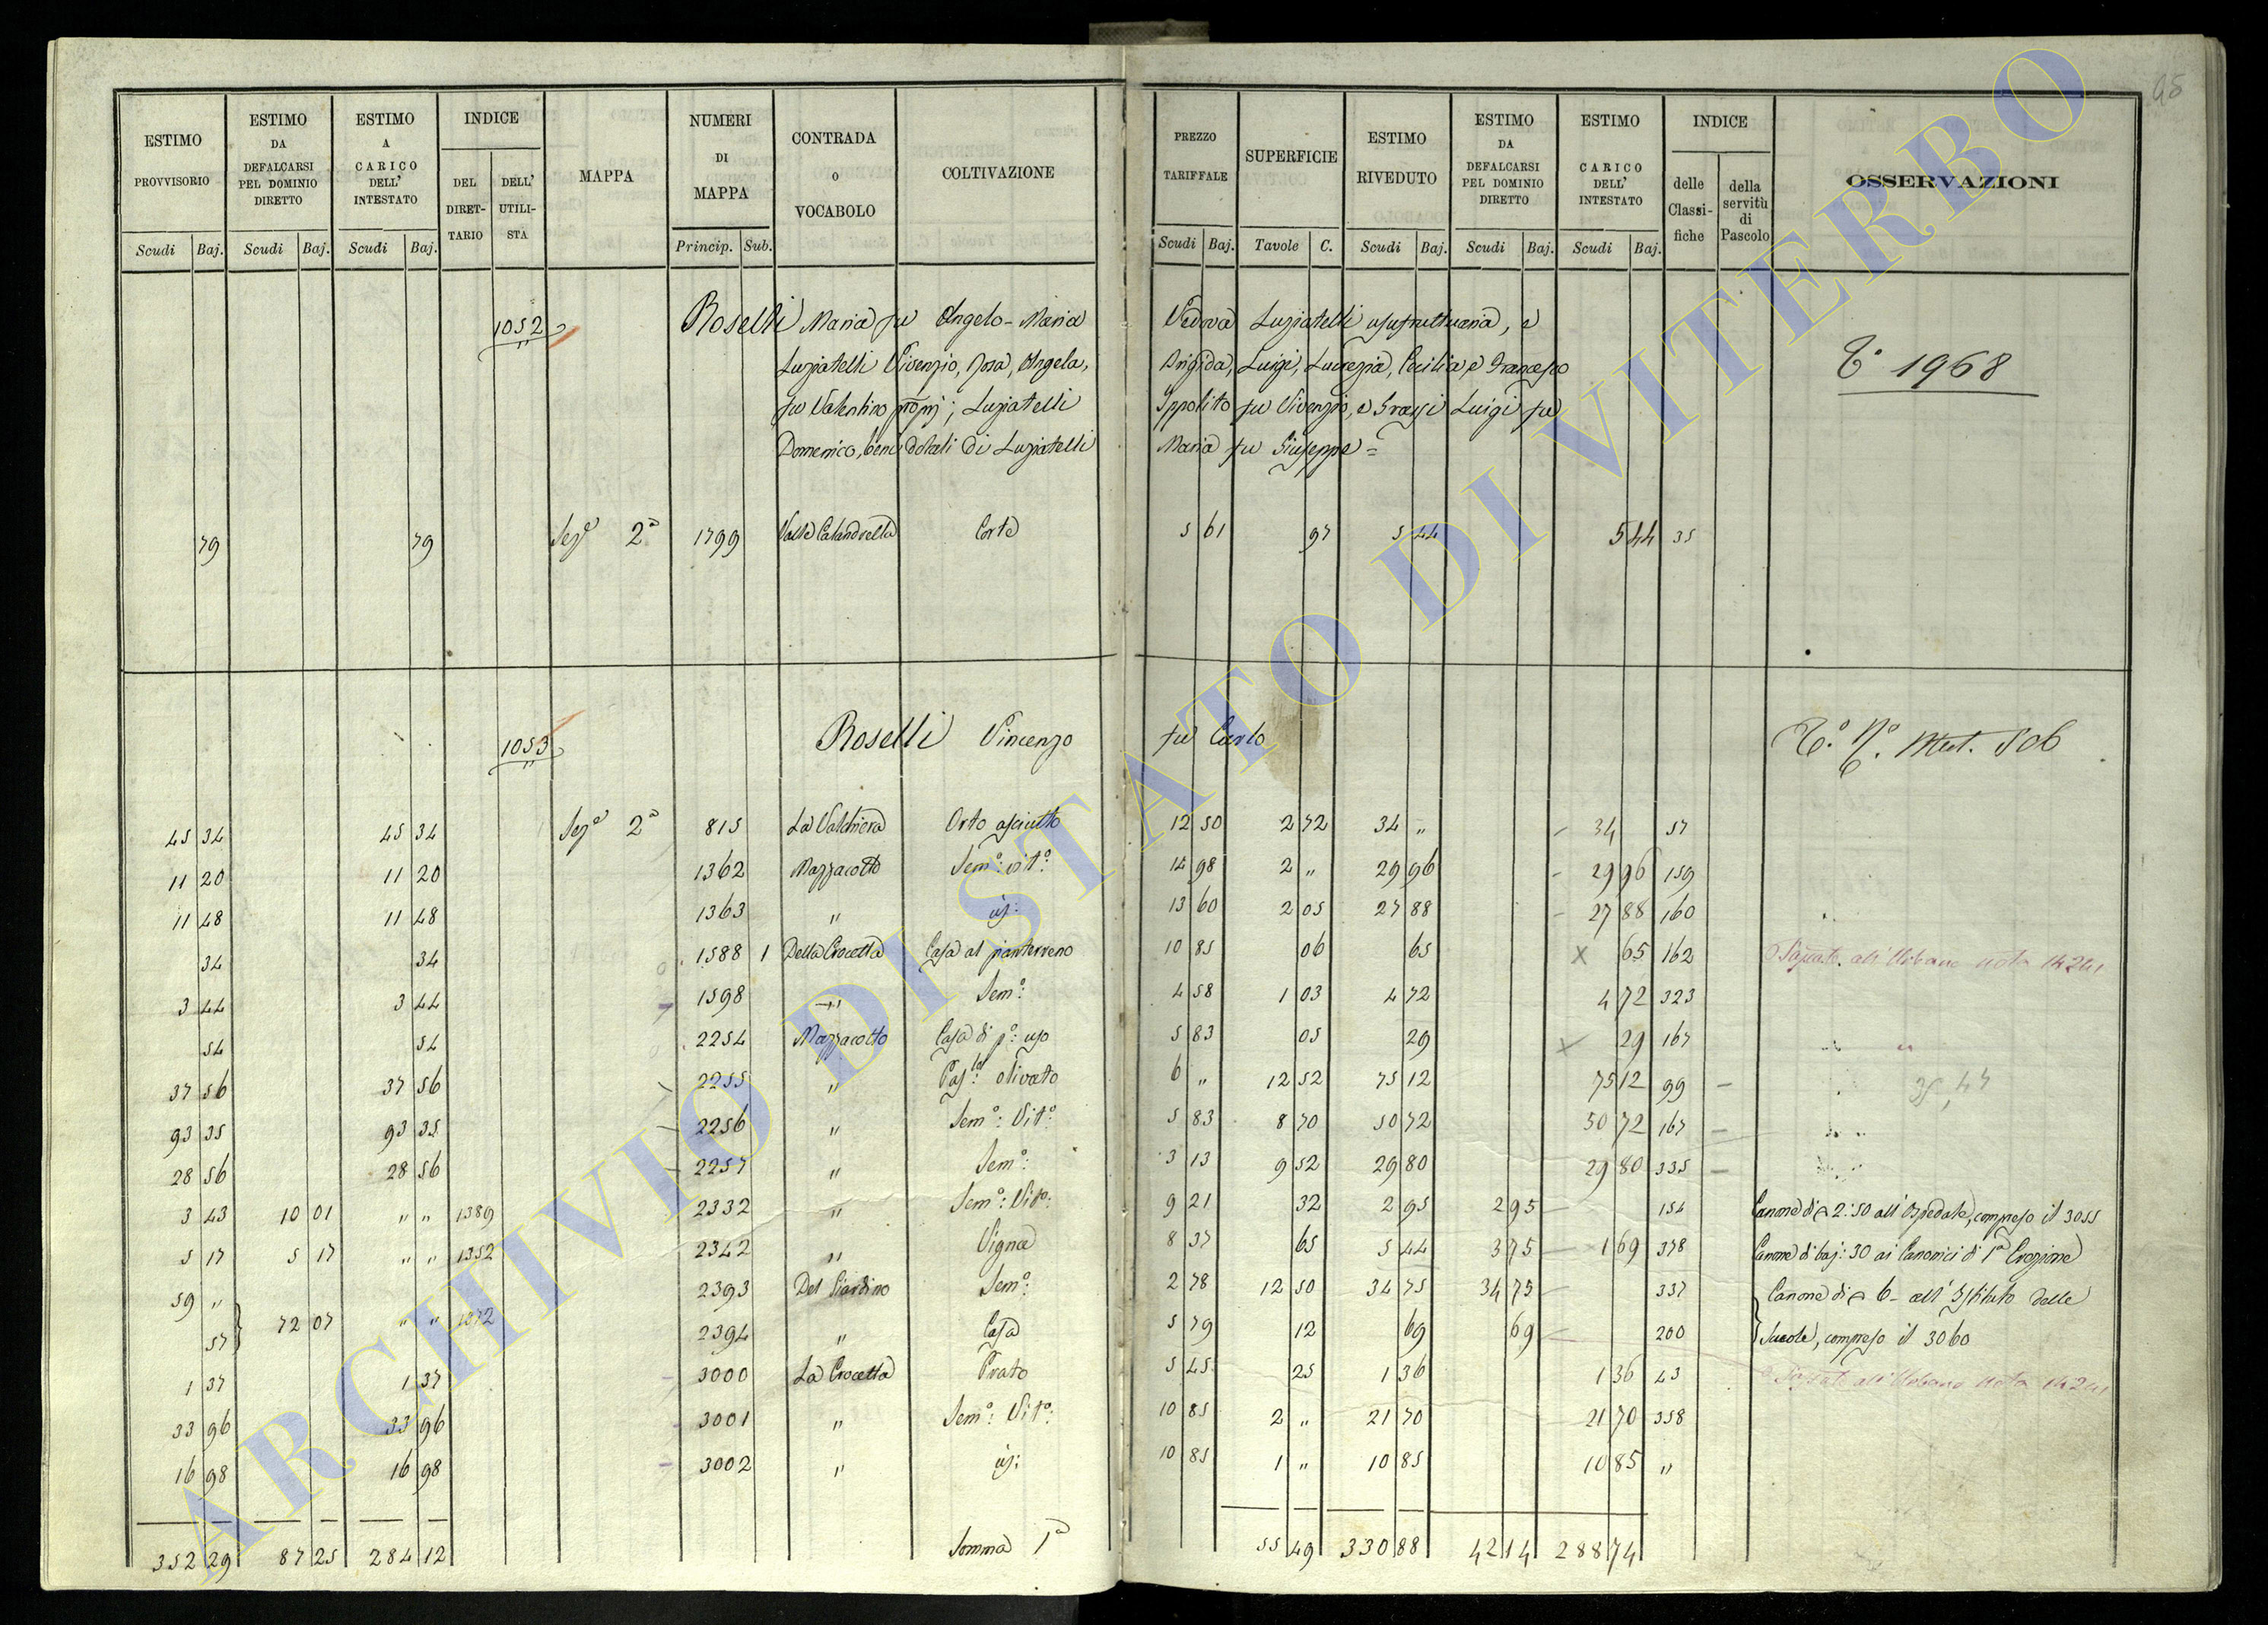 98
ESTIMO PROVVISORIO Scudi Baj.
ESTIMO DA DEFALCARSI PEL DOMINIO DIRETTO Scudi Baj.
ESTIMO A CARICO DELL' INTESTATO Scudi Baj.
INDICE DEL DIRETTARIO DELL' UTILISTA
MAPPA
NUMERI DI MAPPA Princip. Sub.
CONTRADA O VOCABOLO
COLTIVAZIONE
PREZZO TARIFFALE Scudi Baj.
SUPERFICIE Tavole C.
ESTIMO RIVEDUTO Scudi Baj.
ESTIMO DA DEFALCARSI PEL DOMINIO DIRETTO Scudi Baj.
ESTIMO CARICO DELL' INTESTATO Scudi Baj.
INDICE delle Classifiche della servitù di Pascolo
OSSERVAZIONI
1052 Roselli Maria fu Angelo-Maria Vedova Luziatelli usufruttuaria, e
Luziatelli Vivenzio, Rosa, Angela, Brigida, Luigi, Lucrezia, Cecilia e Francesco
fu Valentino proprj; Luziatelli Ippolito fu Vivenzio, e Grassi Luigi fu
Domenico, beni dotali di Luziatelli Maria fu Giuseppe =
1968
79 79 Sez.e 2a 1799 Valle Calandrella Corte 5 61 97 5 44 5 44 35
1053 Roselli Vincenzo fu Carlo
506
45 34 45 34 Sez.e 2a 815 La Valchiera Orto asciutto 12 50 2 72 34 " 34 57
11 20 11 20 1362 Mazzacotto Sem.o: vit.o: 14 98 2 " 29 96 29 96 159
11 48 11 48 1363 " id: 13 60 2 05 27 88 27 88 160
34 34 1588 1 Della Crocetta Casa al pianterreno 10 85 06 65 65 162 Passato all'Urbano nota
3 44 3 44 1598 " Sem.o: 4 58 1 03 4 72 4 72 323
54 54 2254 Mazzacotto Casa di p.o: uso 5 83 05 29 29 167
37 56 37 56 2255 " Pas.lo: olivato 6 " 12 52 75 12 75 12 99
93 35 93 35 2256 " Sem.o: Vit.o: 5 83 8 70 50 72 50 72 167
28 56 28 56 2257 " Sem.o: 3 13 9 52 29 80 29 80 335
3 43 10 01 " " 1389 2332 " Sem.o: Vit.o: 9 21 32 2 95 2 95 154 Canone di 2:50 all'Ospedale, compreso il 3055
5 17 5 17 " " 1352 2342 " Vigna 8 37 65 5 44 3 75 1 69 378 Canone di baj: 30 ai Canonici di 1a Erezione
59 " 2393 Del Giardino Sem.o: 2 78 12 50 34 75 34 75 337 Canone di 6 - all'Istituto delle
57 72 07 " " 1072 2394 " Casa 5 79 12 69 69 200 Scuole, compreso il 3060
1 37 1 37 3000 La Crocetta Prato 5 45 25 1 36 1 36 43 Passato all'Urbano nota
33 96 33 96 3001 " Sem.o: Vit.o: 10 85 2 " 21 70 21 70 358
16 98 16 98 3002 " id: 10 85 1 " 10 85 10 85 "
352 29 87 25 284 12 Somma 1a 55 49 330 88 42 14 288 74
ARCHIVIO DI STATO DI VITERBO